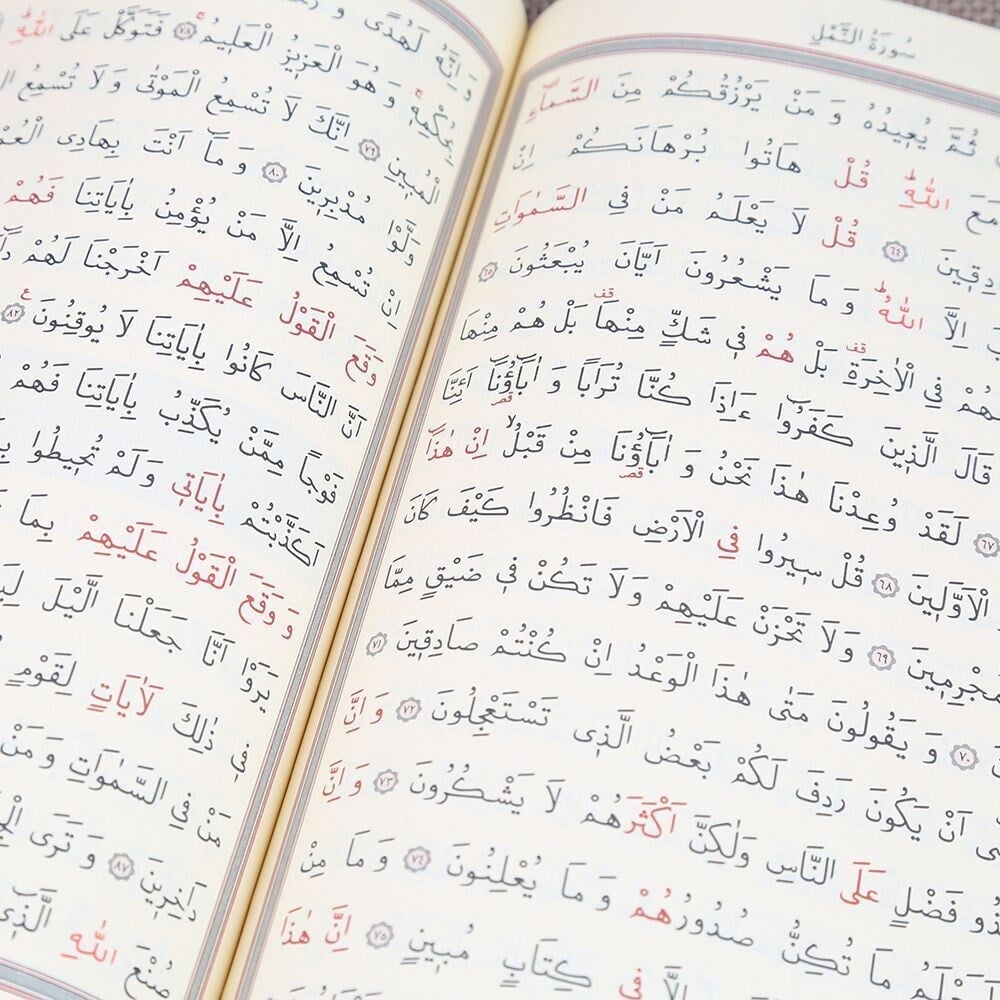 سُورَةُ النَّمْلِ
ثُمَّ يُعِيدُهُ وَ مَنْ يَرْزُقُكُمْ مِنَ السَّمَٓاءِ
مَعَ اللّٰهِۜ قُلْ هَاتُوا بُرْهَانَكُمْ اِنْ
﴿٦٤﴾ قُلْ لَا يَعْلَمُ مَنْ فِي السَّمٰوَاتِ
اِلَّا اللّٰهُۜ وَ مَا يَشْعُرُونَ اَيَّانَ يُبْعَثُونَ ﴿٦٥﴾
فِي الْاٰخِرَةِ بَلْ هُمْ فِي شَكٍّ مِنْهَا بَلْ هُمْ مِنْهَا
قَالَ الَّذِينَ كَفَرُٓوا ءَاِذَا كُنَّا تُرَابًا وَ اٰبَٓاؤُ۬نَٓا اَئِنَّا
﴿٦٧﴾ لَقَدْ وُعِدْنَا هٰذَا نَحْنُ وَ اٰبَٓاؤُ۬نَا مِنْ قَبْلُۙ اِنْ هٰذَٓا
الْاَوَّلِينَ ﴿٦٨﴾ قُلْ سِيرُوا فِي الْاَرْضِ فَانْظُرُوا كَيْفَ كَانَ
﴿٦٩﴾ وَلَا تَحْزَنْ عَلَيْهِمْ وَلَا تَكُنْ فِي ضَيْقٍ مِمَّا
﴿٧٠﴾ وَ يَقُولُونَ مَتٰى هٰذَا الْوَعْدُ اِنْ كُنْتُمْ صَادِقِينَ ﴿٧١﴾
اَنْ يَكُونَ رَدِفَ لَكُمْ بَعْضُ الَّذِي تَسْتَعْجِلُونَ ﴿٧٢﴾ وَ اِنَّ
فَضْلٍ عَلَى النَّاسِ وَلٰكِنَّ اَكْثَرَهُمْ لَا يَشْكُرُونَ ﴿٧٣﴾ وَ اِنَّ
مَا تُكِنُّ صُدُورُهُمْ وَ مَا يُعْلِنُونَ ﴿٧٤﴾ وَ مَا مِنْ
اِلَّا فِي كِتَابٍ مُبِينٍ ﴿٧٥﴾ اِنَّ هٰذَا
وَ اِنَّهُ لَهُدًى وَ
بِحُكْمِهِ وَ هُوَ الْعَزِيزُ الْعَلِيمُ ﴿٧٨﴾ فَتَوَكَّلْ عَلَى اللّٰهِ
الْمُبِينِ ﴿٧٩﴾ اِنَّكَ لَا تُسْمِعُ الْمَوْتٰى وَ لَا تُسْمِعُ
وَلَّوْا مُدْبِرِينَ ﴿٨٠﴾ وَ مَٓا اَنْتَ بِهَادِي
اِنْ تُسْمِعُ اِلَّا مَنْ يُؤْمِنُ بِاٰيَاتِنَا فَهُمْ
وَقَعَ الْقَوْلُ عَلَيْهِمْ اَخْرَجْنَا لَهُمْ
اَنَّ النَّاسَ كَانُوا بِاٰيَاتِنَا لَا يُوقِنُونَ ﴿٨٢﴾
فَوْجًا مِمَّنْ يُكَذِّبُ بِاٰيَاتِنَا فَهُمْ
اَكَذَّبْتُمْ بِاٰيَاتِي وَلَمْ تُحِيطُوا
وَ وَقَعَ الْقَوْلُ عَلَيْهِمْ بِمَا
يَرَوْا اَنَّا جَعَلْنَا الَّيْلَ
فِي ذٰلِكَ لَاٰيَاتٍ لِقَوْمٍ
مَنْ فِي السَّمٰوَاتِ وَ مَنْ
دَاخِرِينَ ﴿٨٧﴾ وَ تَرَى
صُنْعَ اللّٰهِ الَّذِٓي